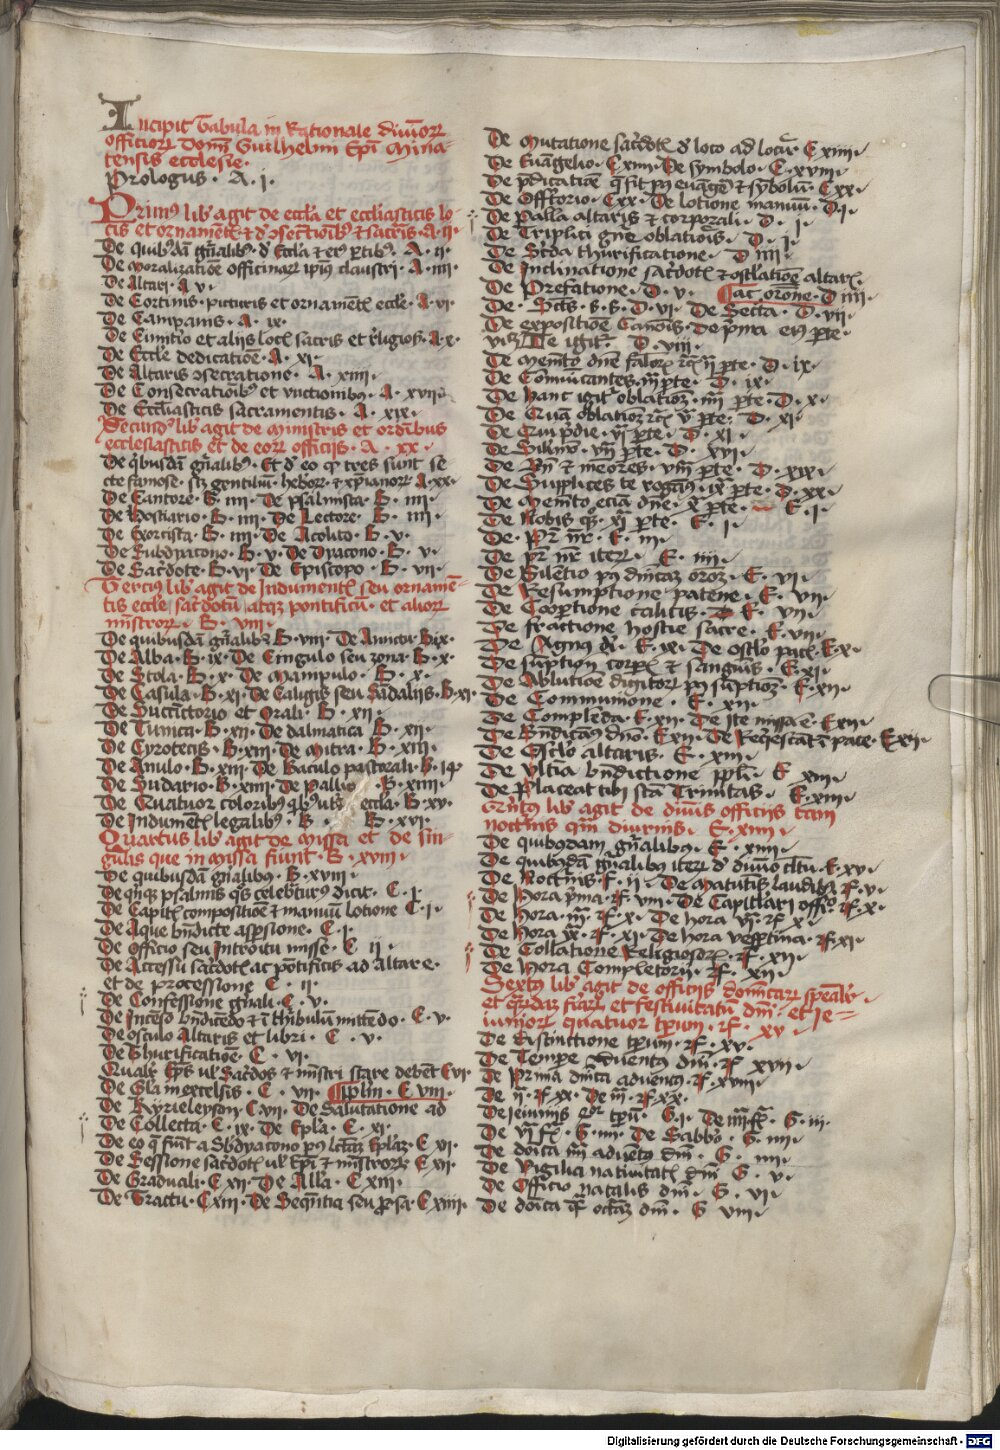 Incipit Tabula in Rationale diuinorꝝ
officiorꝝ Domĩ Guilhelmi Epĩ Mima-
tensis ecclesie.
Prologus . A . i .
Primꝰ lib̾ agit de eccl̃a et eccl̃iasticis lo-
cis et ornamentꝭ et d̾ ꝯsecrat̃ionibꝰ ⁊ sacris . A . ii
De quibꝰdã gñalibꝰ . d̾ Eccl̃a ⁊ eiꝰ ꝑtibꝰ . A . ii .
De moralizatiõe officinarꝝ ipiꝰ claustri . A . iiii .
De Altari . A . v .
De Cortinis . picturis et ornamẽtꝭ eccl̃e . A . vi
De Campanis . A . ix .
De Cimit̃io et alijs locꝭ sacris et religiosꝭ . A . x .
De Eccl̃e dedicatiõe . A . xi .
De Altaris ꝯsecratione . A . xiiii .
De Consecratiõibꝰ et vnctionibꝰ . A . xvii
De Eccl̃iasticis sacramentis . A . xix .
Secundꝰ lib̾ agit de ministris et ordĩbus
ecclesiasticis et de eorꝝ officijs . A . xx .
De q̃busdã gñalibꝰ . Et d̾ eo ꝙ tres sunt se
cte famose . scꝫ gentiliũ . hebreorꝝ . ⁊ xp̃ianorꝝ A . xx .
De Cantore . B . iiii . De psalmista . B . iiii .
De Hostiario . B . iiii . De Lectore . B . iiii .
De Exorcista . B . iiii . De Acolito . B . v .
De Subdyacono . B . v . De Dyacono . B . v .
De Sac̾dote . B . vi . De Episcopo . B . vii .
Tercius lib̾ agit de Indumentꝭ seu ornamẽ-
tis eccl̃e sac̾dotũ atqꝫ pontificũ . et alior̃
mĩstrorꝝ . B . viii .
De quibusdã gñalibꝫ B . viii . De Amictu B ix .
De Alba . B . ix . De Cingulo seu zona . B . x .
De Stola . B . x . De Manipulo . B . x .
De Casula . B . xi . De Caligis seu sãdalijs . B . xi .
De Succĩctorio et Orali . B . xii .
De Tunica . B . xii . De dalmatica B . xii .
De Cyrotecis . B . xiii . De Mitra . B . xiii .
De Anulo . B . xiii . De Baculo pastorali . B . 14 .
De Sudario . B . xiiii . De Pallio . B . xiiii .
De Quatuor coloribꝰ qibꝰ vtĩ eccl̃a . B . xv .
De Indumentꝭ legalibꝰ . B . xvi .
Quartus lib̾ agit de Missa et de sin-
gulis que in Missa fiunt . B . xviii .
De quibusdã gñalibꝰ . B . xviii .
De qĩqꝫ psalmis q̃s celebraturꝰ dicit . C . i .
De Capitꝭ compositiõe ⁊ manuũ lotione C . i .
De Aque bñdicte asp̃sione . C . i .
De Officio seu Introitu misse . C ii .
De Accessu sac̾dotꝭ ac põtificis ad altare .
et de processione . C . ii .
De Confessione gñali . C . v .
De Incẽso bñdicẽdo ⁊ ĩ thuribulũ mittẽdo . C . v .
De osculo Altaris et libri . C . v .
De Thurificatiõe . C . vi .
Qual̾r Ep̃s vl̾ Sac̾dos ⁊ mĩstri stare debẽt C vi
De Gl̃a in excelsis . C . vii . pl̃m . C . viii .
De Kyrieleyson . C . vii . De Salutatione ad
De Collecta . C . ix . De Epl̃a . C . xi .
De eo q̃ fiũt a Subdyacono post lcãꝫ Epl̃aꝫ . C xi .
De Sessione sac̾dotꝭ vl̾ Epĩ ⁊ mĩstrorꝝ . C xii .
De Graduali . C xii . De All̃a . C xiii .
De Tractu . C xiii . De Seqũtia seu prosa . C xiiii .
De Mutatione sac̾dotꝭ d̾ loco ad locũ . C xiiii .
De Euãgelio . C xiiii . De symbolo . C . xviii .
De p̾dicatiõe q̃ fit post euãge ⁊ sybolũ . C xx .
De Offert̃orio . C xx . De lotione manuũ . D . i .
De Palla altaris ⁊ corporali . D . i .
De Triplici gñe oblatiõis . D . i .
De Sc̾da thurificatione . D iiii .
De Inclinatione sac̾dotꝭ ⁊ oscl̃atiõe altarꝭ .
De Prefatione . D . v . ac orõne . D iiii .
De . Sctũs . s . s . D . vi . De Secreta . D . vii .
De expositiõe Canõis . de p̾ma eiꝰ ꝑte .
vĩ . Te igit̾ . D . viii .
De Memẽto dñe famlorꝝ ⁊c̃ ij ꝑte . D . ix .
De Cõmunicantes . iij ꝑte . D . ix .
De Hanc igit̾ oblatiõeꝫ . iiij ꝑte . D . x .
De Quã oblatiõeꝫ ⁊c̃ v ꝑte . D . xi .
De Qui p̾die . vi ꝑte . D . xi .
De Simil̾r . vij ꝑte . D . xvi .
De Vñ ⁊ memores . viij ꝑte . D . xix .
De Supplices te rogamꝰ . ix ꝑte . D . xx .
De Memẽto eciã dñe . x ꝑte . E . i .
De Nobis q̃ꝫ . xi ꝑte . E . i .
De Pr̃ nr̃ . E . iii .
De pr̃ nr̃ iterꝝ . E . iiii .
De Silentio post dñicaꝫ orõeꝫ . E . vi .
De Resumptione patene . E . vii .
De Cooptione calicis . E . vii .
De fractione hostie sacre . E . viii .
De Agnꝰ dei . E . ix . De Oscl̃o pacꝭ . E . x .
De Sũption corp̃ꝭ ⁊ sanguĩs . E . xi .
De Ablutiõe digitorꝝ post sũptiõeꝫ . E . xii .
De Communione . E . xii .
De Complẽda . E . xii . De Ite missa ẽ . E xii .
De Bñdicamꝰ dño . E xii . De Requiescãt ĩ pace . E xii .
De Oscl̃o altaris . E . xiii .
De Vltĩa bñdictione ppl̃i . E xiii .
De Placeat tibi scã Trinitas . E . xiii .
Quĩtus lib̾ agit de diuĩs officijs tam
nocturnis q̃m diurnis . E . xiiii .
De quibusdam gñalibus . E . xiiii .
De quibusdã gñalibus iterꝝ d̾ diuino cultu . E . xv .
De Nocturnis . F . ii . De Matutinis laudibꝫ F . v .
De Hora p̾ma . F . viii . De Capitl̃ari offo . F . x .
De Hora . iij . F . x . De Hora vi . F x .
De Hora ix . F . xi . De Hora vesp̃tina . F . xi .
De Collatione Religiosorꝝ . F . xii .
De Hora Completorij . F . xii .
Sextus lib̾ agit de officijs dominicarꝝ spẽalr̃ .
et q̃rũdaꝫ feriarꝝ et festiuitatũ dñi . et Ie-
iuniorꝝ quatuor tp̃rum . F . xv .
De Distinctione tp̃rum . F . xv .
De Tempore aduentꝰ dñi . F xvii .
De Prima dñica aduentꝰ . F . xviii .
De ij . F . xx . De iij . F . xx .
De ieiuniis qtuor tp̃rũ . G . i . De iiij fr̃ . G . iii .
De vi fr̃ . G . iiii . De Sabbo . G . iiii .
De doĩca iiij aduẽtꝰ dñi . G . iiii .
De Vigilia natiuitatꝭ dñi G . v .
De Officio natalis dñi . G . vi .
De doĩca ifr̃ octauas dñi . G viii .
Digitalisierung gefördert durch die Deutsche Forschungsgemeinschaft - DFG